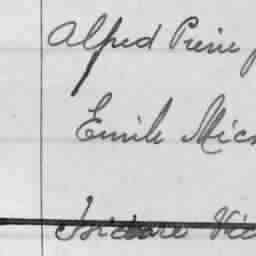 Alfred Pierre
Emile Mich
Isidore Vic